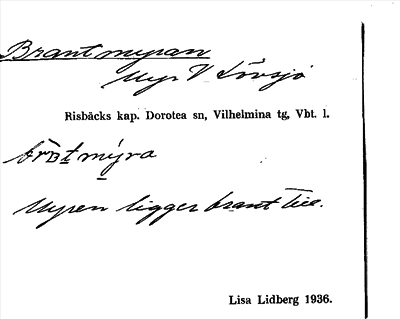 Brantmyran
Myr V Lövsjö
Risbäcks kap. Dorotea sn, Vilhelmina tg, Vbt. l.
brant mýra
Myren ligger brant till.
Lisa Lidberg 1936.